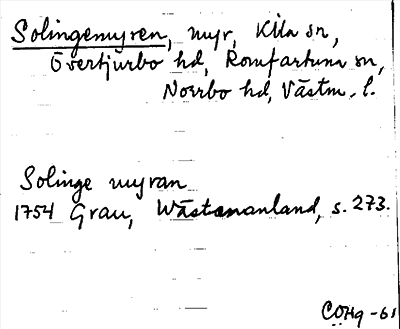 Solingemyren, myr, Kila sn,
Övertjurbo hd, Romfartuna sn,
Norrbo hd, Västm. l.
Solinge myran
1754 Grau, Wästmanland, s. 273.
COHg -61